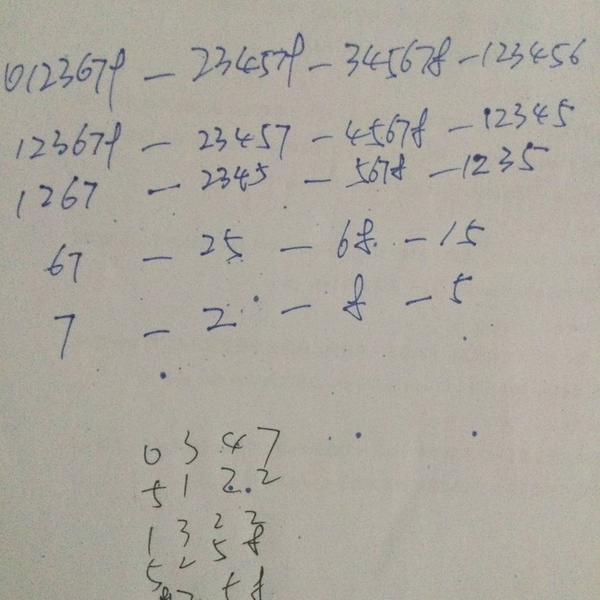 0123678 - 234578 - 345678 - 123456
123678 - 23457 - 45678 - 12345
1267 - 2345 - 5678 - 1235
67 - 25 - 68 - 15
7 - 2 - 8 - 5
0 3 4 7
5 1 2 2
1 3 2 2
5 2 5 8